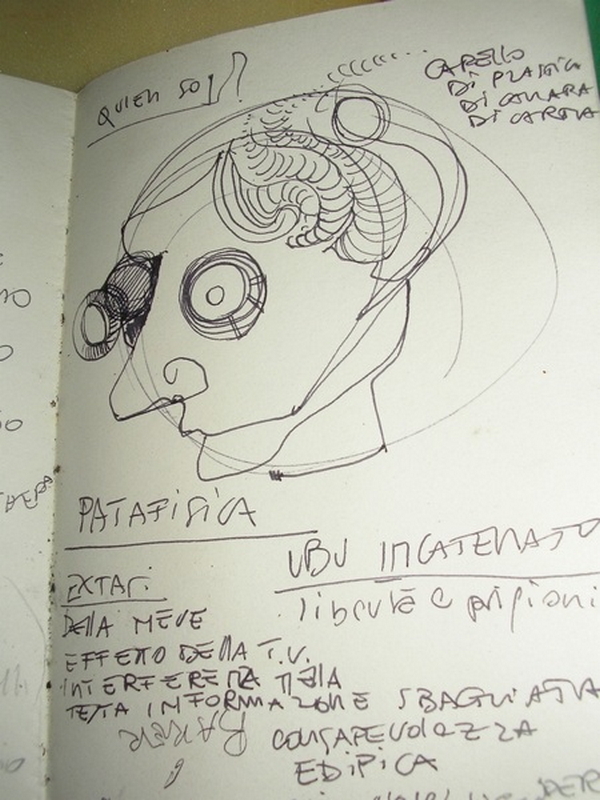 QUIEN SOY?
CAPELLO
DI PLASTICA
DI CANAPA
DI CARTA
PATAFISICA
UBU INCATENATO
libertà e prigioni
EXTASI
DELLA NEVE
EFFETTO DELLA T.V.
INTERFERENZA NELLA
TESTA INFORMAZIONE SBAGLIATA
CONSAPEVOLEZZA
EDIPICA